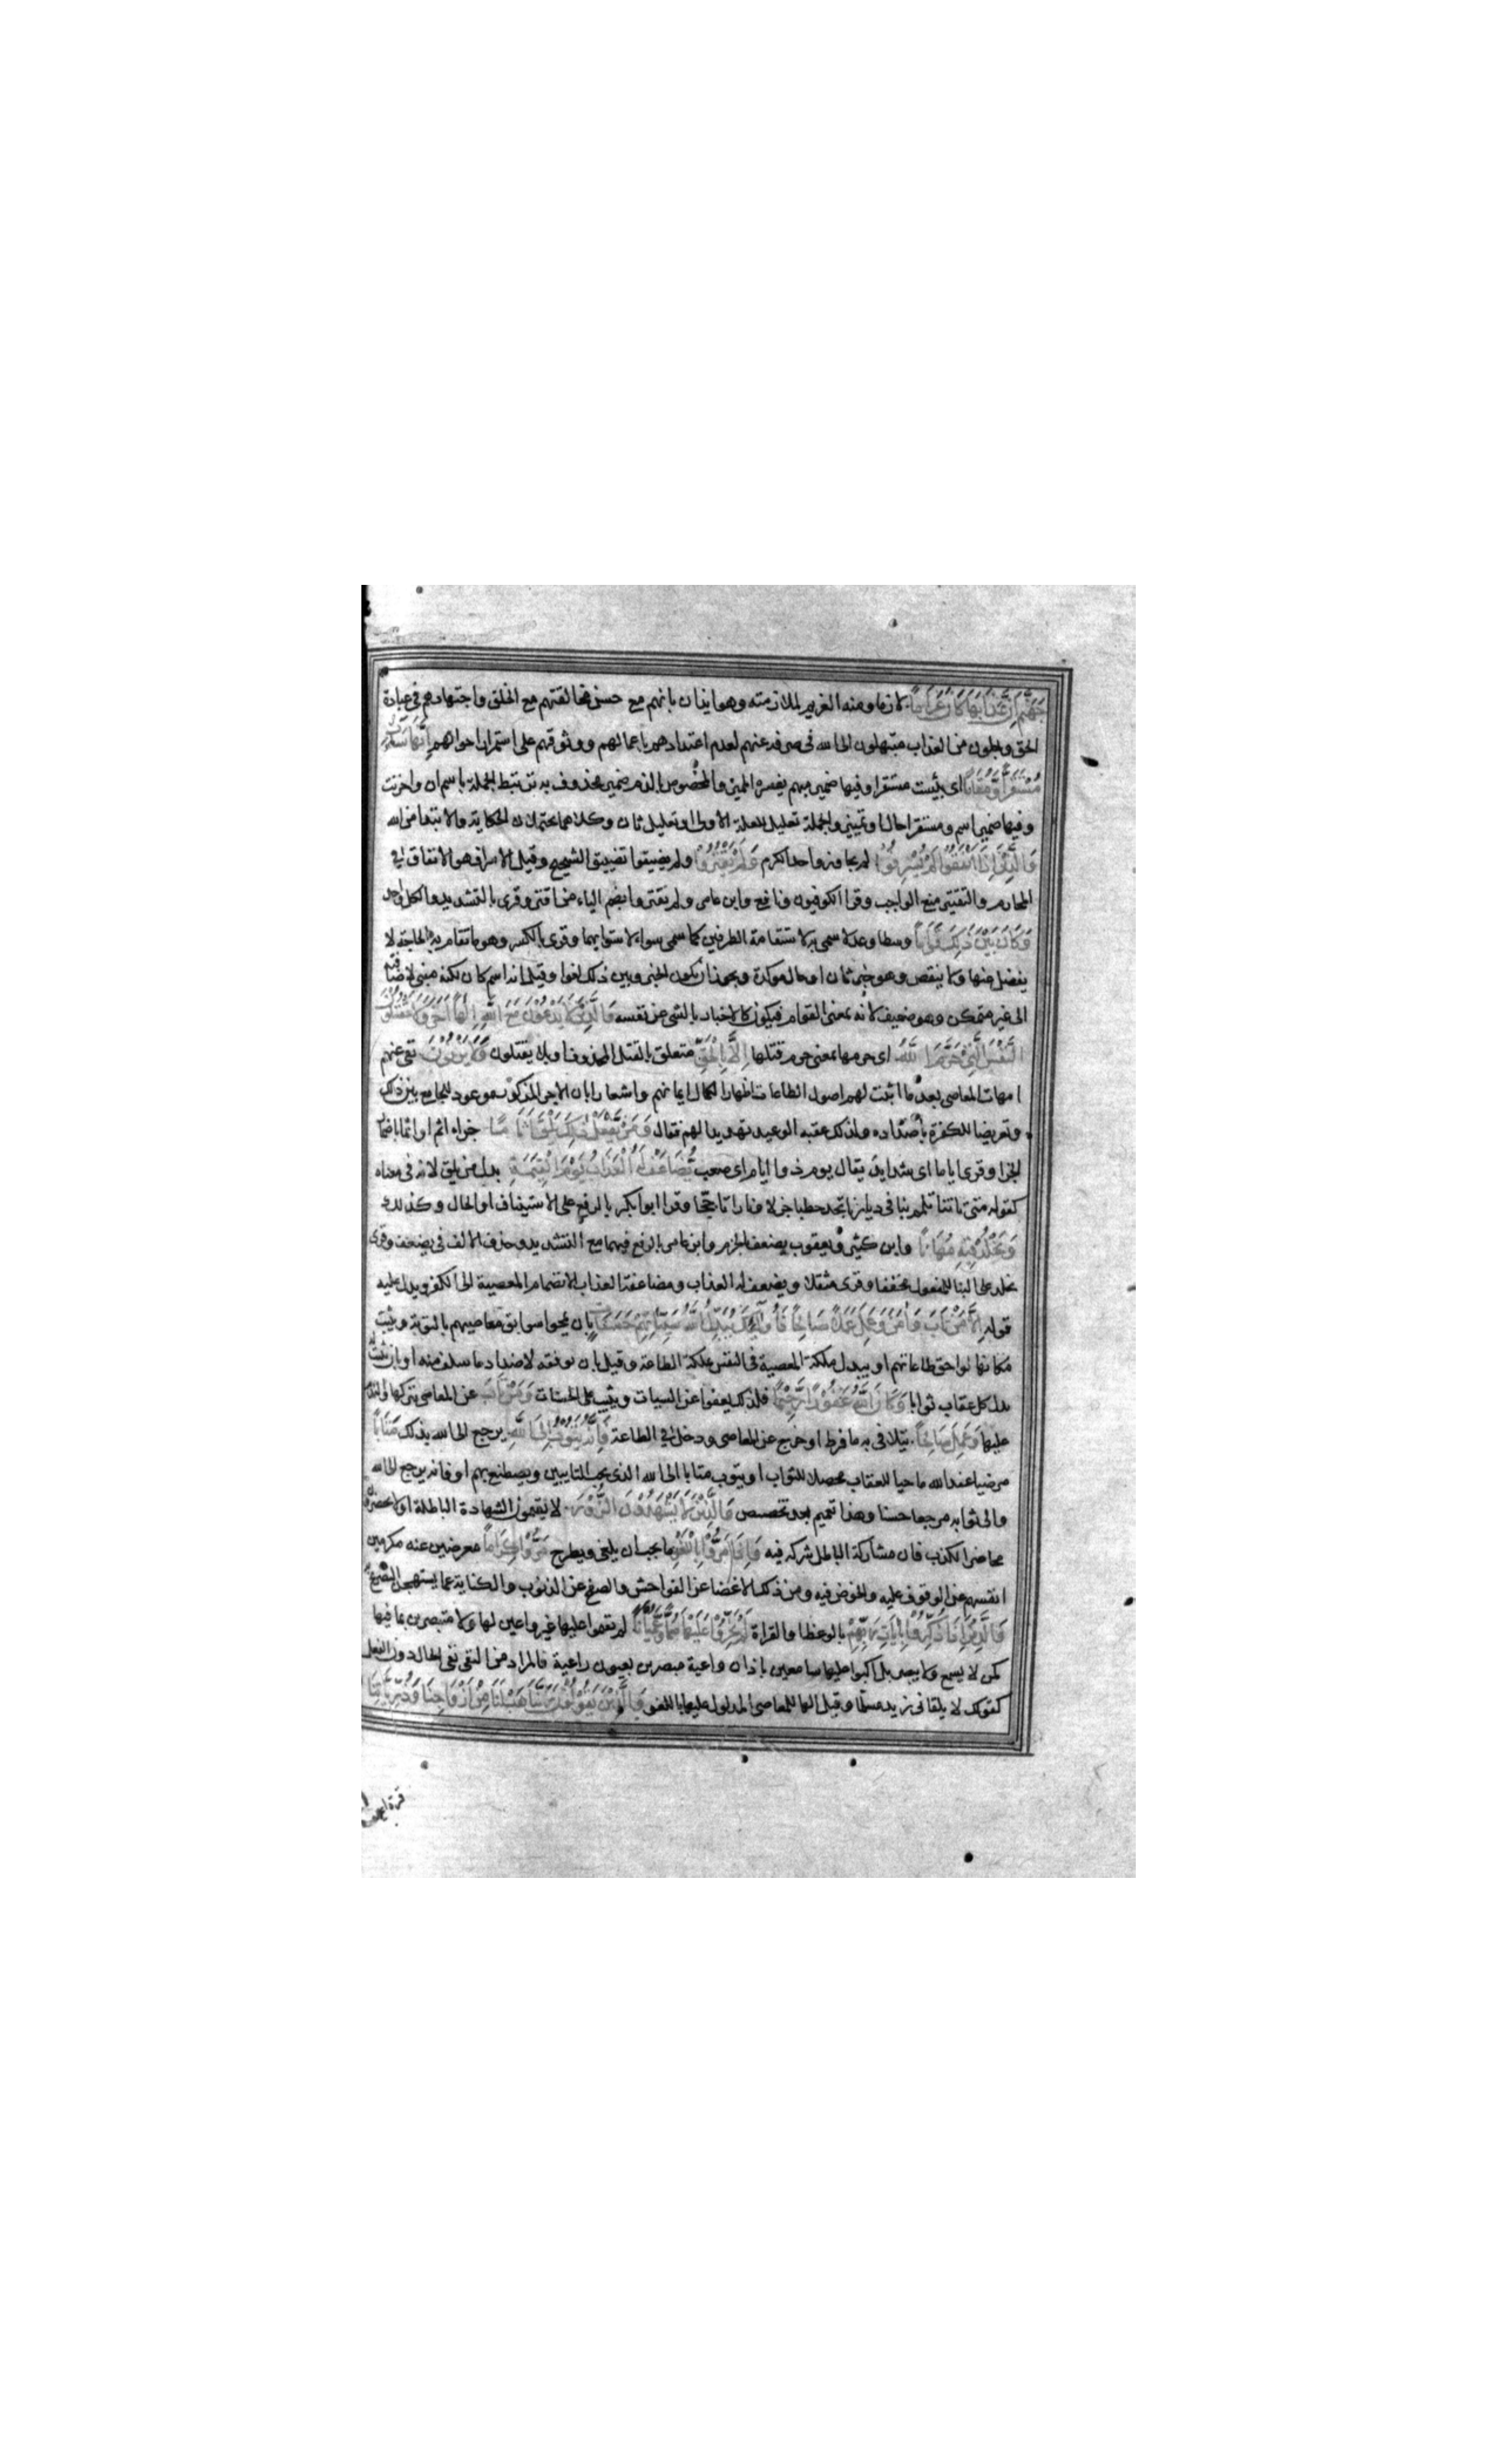 جَهَنَّمَ اِنَّ عَذَابَهَا كَانَ غَرَامًا لازما ومنه الغريم لملازمته وهو ايذان بانهم مع حسن مخالقتهم مع الخلق واجتهادهم فى عبادة
الحق وجلون من العذاب مبتهلون الى الله فى صرفه عنهم لعدم اعتدادهم باعمالهم ووثوقهم على استمرار احوالهم اِنَّهَا سَاءَتْ
مُسْتَقَرًّا وَمُقَامًا اى بئست مستقرا وفيها ضمير مبهم يفسره المميز والمخصوص بالذم ضمير محذوف به ترتبط الجملة باسم ان واحزنت
وفيها ضمير اسم ومستقرا حال او تمييز والجملة تعليل للعلة الاولى او تعليل ثان وكلاهما يحتملان الحكاية والابتدا من الله
وَالَّذِينَ اِذَا اَنْفَقُوا لَمْ يُسْرِفُوا لم يجاوزوا حد الكرم وَلَمْ يَقْتُرُوا ولم يضيقوا تضييق الشحيح وقيل الاسراف هو الانفاق فى
المحارم والتقتير منع الواجب وقرا الكوفيون ونافع وابن عامر ولم يقتروا بضم الياء من اقتر وقرى بالتشديد والكل واحد
وَكَانَ بَيْنَ ذَلِكَ قَوَامًا وسطا وعدلا سمى به لاستقامة الطرفين كما سمى سواء لاستوائهما وقرى بالكسر وهو ما تقام به الحاجة لا
يفضل عنها ولا ينقص وهو خبر ثان او حال مؤكدة ويجوز ان يكون الخبر وبين ذلك لغوا وقيل انه اسم كان لكنه مبنى لاضافته
الى غير متمكن وهو ضعيف لانه بمعنى القوام فيكون كالاخبار بالشى عن نفسه وَالَّذِينَ لَا يَدْعُونَ مَعَ اللَّهِ اِلَهًا آخَرَ وَلَا يَقْتُلُونَ
النَّفْسَ الَّتِى حَرَّمَ اللَّهُ اى حرمها بمعنى حرم قتلها اِلَّا بِالْحَقِّ متعلق بالقتل المحذوف او بلا يقتلون وَلَا يَزْنُونَ نفى عنهم
امهات المعاصى بعد ما اثبت لهم اصول الطاعات اظهارا لكمال ايمانهم واشعارا بان الاجر المذكور موعود للجامع بين ذلك
وتعريضا للكفرة باضداده ولذلك عقبه الوعيد تهديدا لهم فقال وَمَنْ يَفْعَلْ ذَلِكَ يَلْقَ اَثَامًا جزاء اثم او اثما باضمار
الجزا وقرى اياما اى شدايد يقال يوم ذو ايام اى صعب يُضَاعَفْ لَهُ الْعَذَابُ يَوْمَ الْقِيَمَةِ بدل من يلق لانه فى معناه
كقوله متى تاتنا تلمم بنا فى ديارنا تجد حطبا جزلا ونارا تاججا وقرا ابو بكر بالرفع على الاستيناف او الحال وكذلك
وَيَخْلُدْ فِيهِ مُهَانًا وابن كثير ويعقوب يضعف بالجزم وابن عامر بالرفع فيهما مع التشديد وحذف الالف فى يضعف وقرى
يخلد على البنا للمفعول مخففا وقرى مثقلا ويضعف له العذاب ومضاعفة العذاب لانضمام المعصية الى الكفر ويدل عليه
قوله اِلَّا مَنْ تَابَ وَآمَنَ وَعَمِلَ عَمَلًا صَالِحًا فَاُولَئِكَ يُبَدِّلُ اللَّهُ سَيِّئَاتِهِمْ حَسَنَاتٍ بان يمحوا سوابق معاصيهم بالتوبة ويثبت
مكانها لواحق طاعاتهم او يبدل ملكة المعصية فى النفس بملكة الطاعة وقيل بان يوفقه لاضداد ما سلف منه او بان يثبت
بدل كل عقاب ثوابا وَكَانَ اللَّهُ غَفُورًا رَحِيمًا فلذلك يعفوا عن السيات ويثيب على الحسنات وَمَنْ تَابَ عن المعاصى بتركها والندم
عليها وَعَمِلَ صَالِحًا يتلافى به ما فرط او خرج عن المعاصى ودخل فى الطاعة فَاِنَّهُ يَتُوبُ اِلَى اللَّهِ يرجع الى الله بذلك مَتَابًا
مرضيا عند الله ماحيا للعقاب محصلا للثواب او يتوب متابا الى الله الذى يحب التايبين ويصطنع بهم او فانه يرجع الى الله
والى ثوابه مرجعا حسنا وهذا تعميم بعد تخصيص وَالَّذِينَ لَا يَشْهَدُونَ الزُّورَ لا يقيمون الشهادة الباطلة او لا يحضرون
محاضر الكذب فان مشاركة الباطل شركه فيه وَاِذَا مَرُّوا بِاللَّغْوِ ما يجب ان يلغى ويطرح مَرُّوا كِرَامًا معرضين عنه مكرمين
انفسهم عن الوقوف عليه والخوض فيه ومن ذلك الاغضا عن الفواحش والصفح عن الذنوب والكناية عما يستهجن التصريح
وَالَّذِينَ اِذَا ذُكِّرُوا بِآيَاتِ رَبِّهِمْ بالوعظ او القراة لَمْ يَخِرُّوا عَلَيْهَا صُمًّا وَعُمْيَانًا لم يقعوا عليها غير واعين لها ولا متبصرين بما فيها
كمن لا يسمع ولا يبصر بل اكبوا عليها سامعين باذان واعية مبصرين بعيون راعية فالمراد من النفى نفى الحال دون الفعل
كقولك لا يلقانى زيد مسلما وقيل الها للمعاصى المدلول عليها باللغو وَالَّذِينَ يَقُولُونَ رَبَّنَا هَبْ لَنَا مِنْ اَزْوَاجِنَا وَذُرِّيَّاتِنَا
قرة اعين